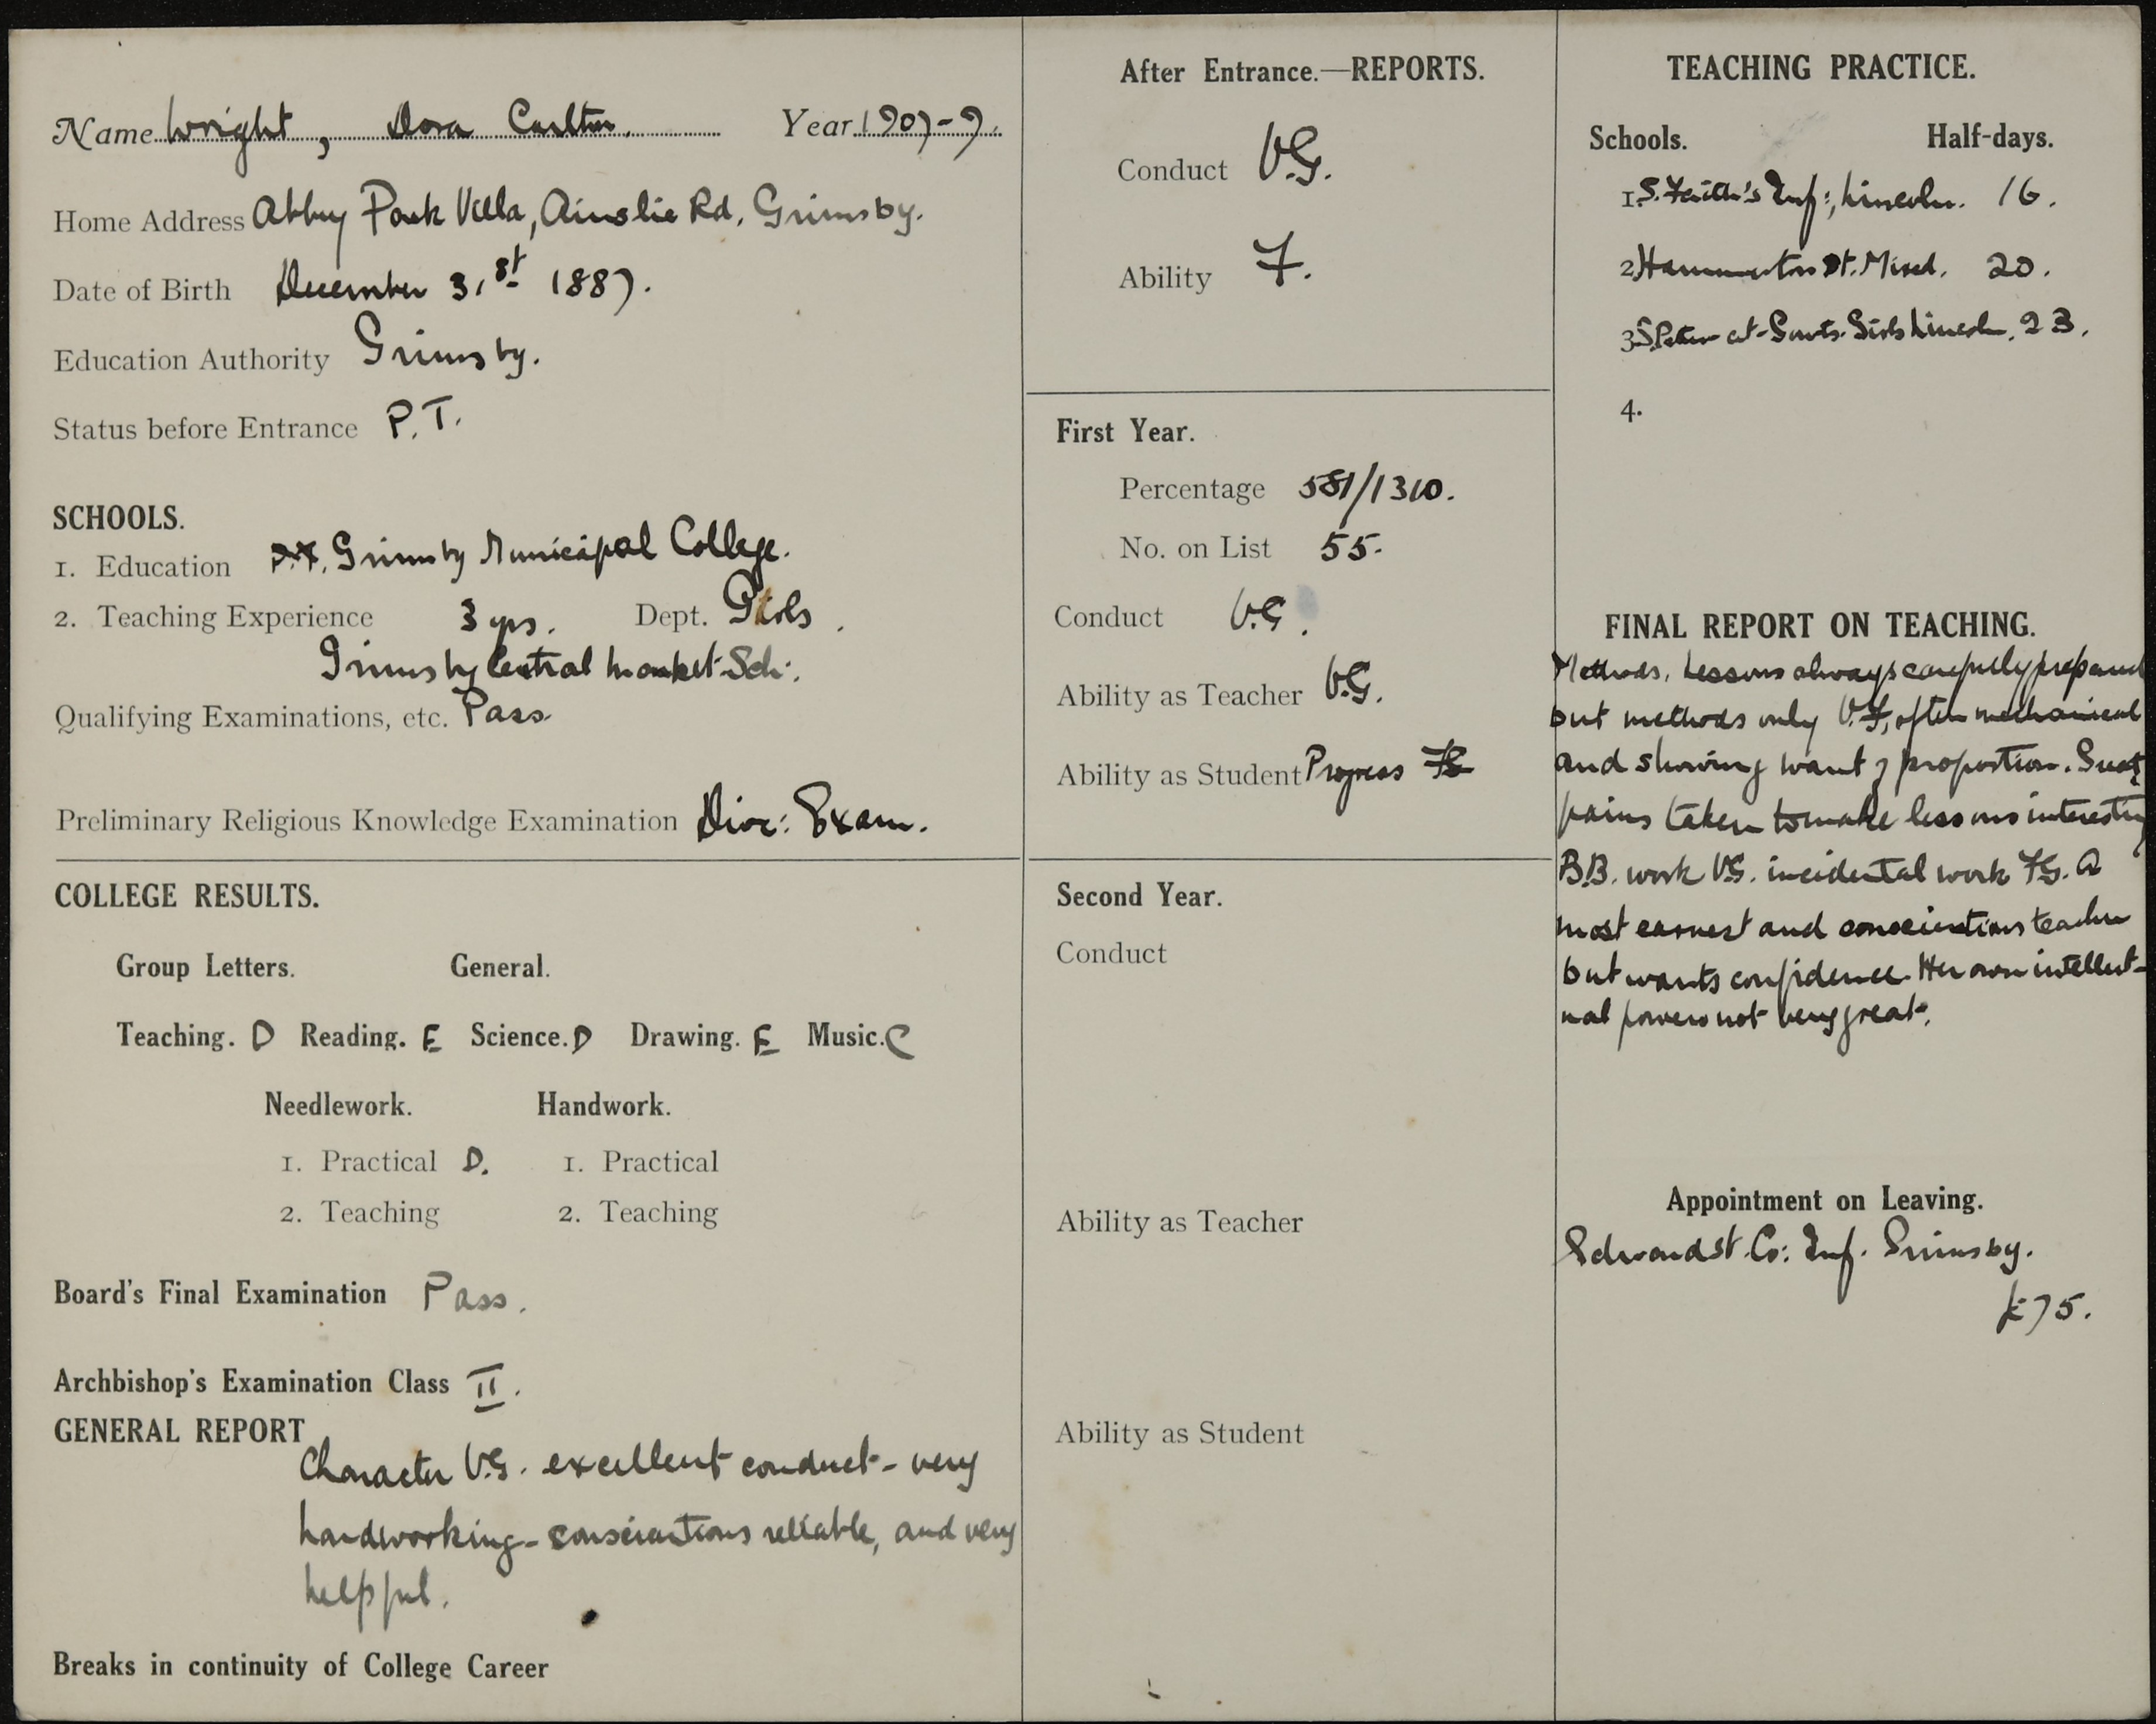 Name Wright, Dora Carlton. Year 1907-9.
Home Address Abbey Park Villa, Ainslie Rd, Grimsby.
Date of Birth December 31st 1887.
Education Authority Grimsby.
Status before Entrance P.T.
SCHOOLS.
1. Education Grimsby Municipal College.
2. Teaching Experience 3 yrs. Dept. Girls.
Grimsby Central Market Sch:.
Qualifying Examinations, etc. Pass.
Preliminary Religious Knowledge Examination Dioc: Exam.
COLLEGE RESULTS.
Group Letters. General.
Teaching. D Reading. E Science. D Drawing. E Music. C
Needlework. Handwork.
1. Practical D. 1. Practical
2. Teaching 2. Teaching
Board's Final Examination Pass.
Archbishop's Examination Class II.
GENERAL REPORT
Character V.G. excellent conduct - very
hardworking - conscientious reliable, and very
helpful.
Breaks in continuity of College Career
After Entrance.—REPORTS.
Conduct V.G.
Ability F.
First Year.
Percentage 581/1310.
No. on List 55.
Conduct V.G.
Ability as Teacher V.G.
Ability as Student Progress
Second Year.
Conduct
Ability as Teacher
Ability as Student
TEACHING PRACTICE.
Schools. Half-days.
1. S. Faith's Inf:, Lincoln. 16.
2. Hammerton St. Mixed. 20.
3. S. Peter-at-Gowts. Girls Lincoln. 23.
4.
FINAL REPORT ON TEACHING.
Methods. Lessons always carefully prepared
but methods only V.F, often mechanical
and showing want of proportion. Great
pains taken to make lessons interesting
B.B. work V.G. incidental work F.G. A
most earnest and conscientious teacher
but wants confidence. Her own intellect-
ual powers not very great.
Appointment on Leaving.
Edward St. Co: Inf. Grimsby.
£75.